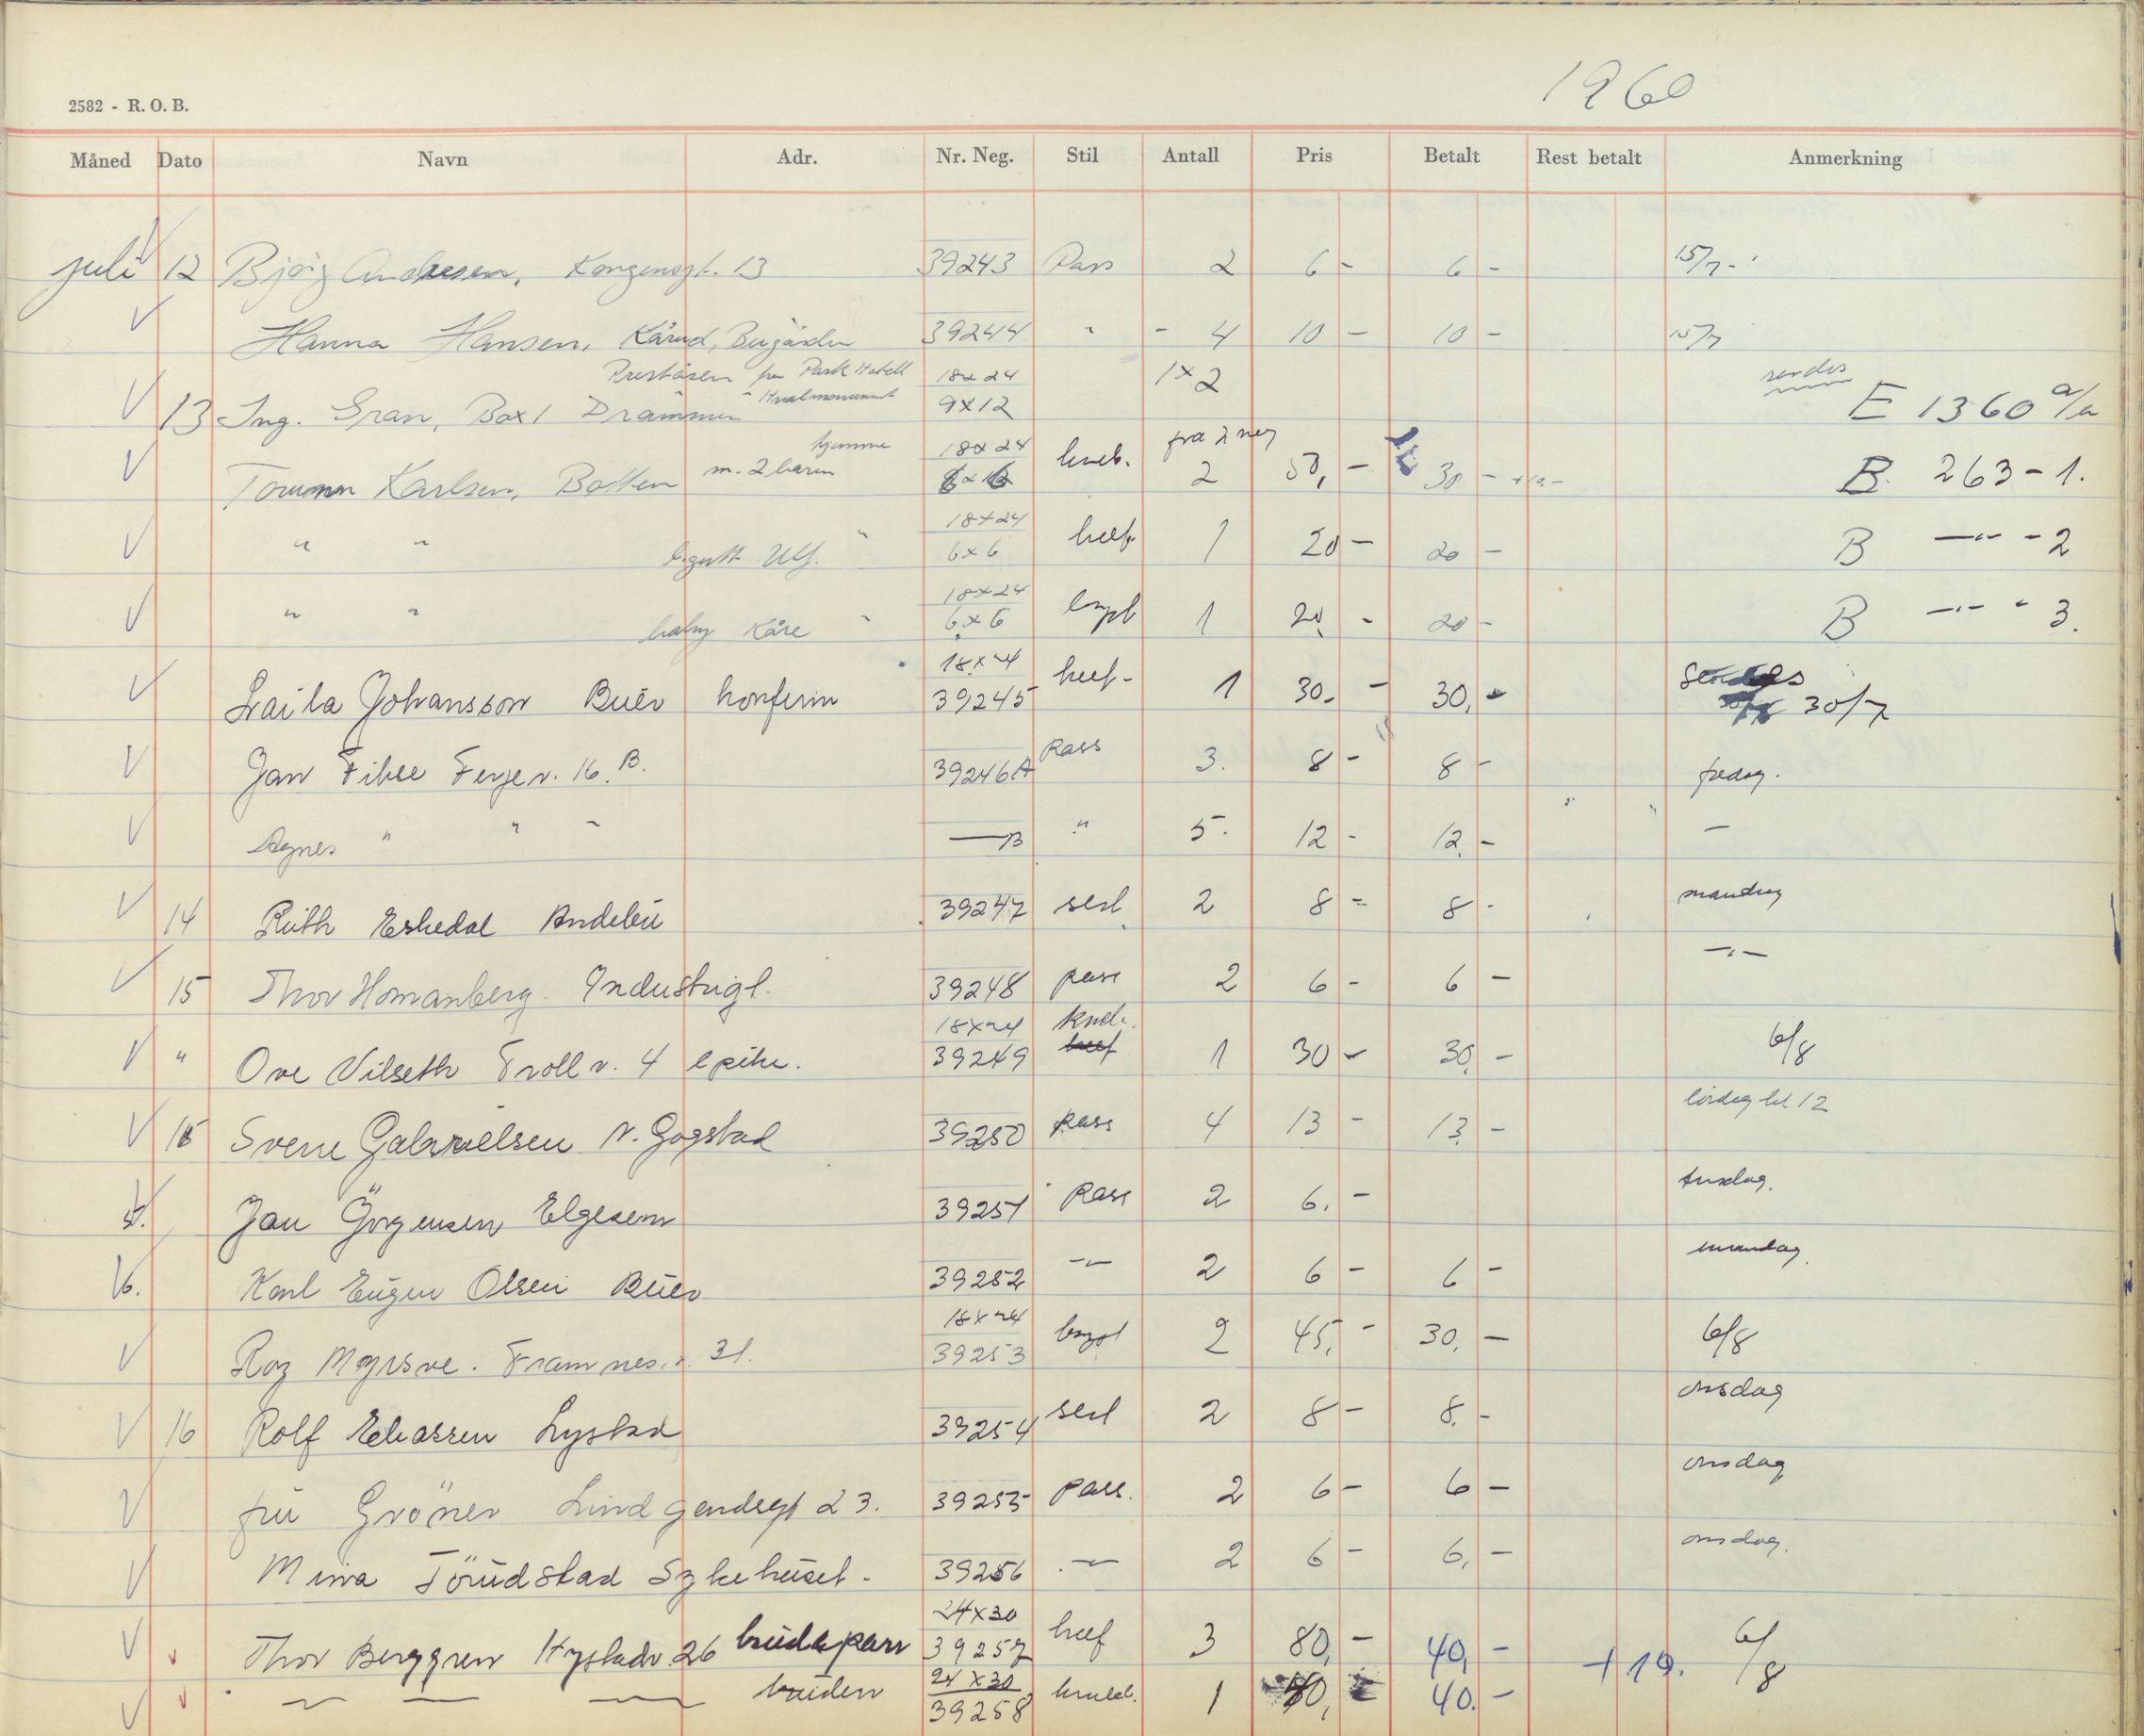 1960
2582 - R. O. B.
Måned Dato Navn Adr. Nr. Neg. Stil Antall Pris Betalt Rest betalt Anmerkning
juli 12 Bjørg Andresen, Kongensgt. 13 39243 Pass 2 6 - 6 - 15/7 -
Hanna Hansen, 39244 " - 4 10 - 10 - 15/7
Preståsen fra Park Hotell 18x24 1x2 sendes
13 Ing. Gran, Box 1 Drammen " Hvalmonument 9x12 E 1360 a/a
hjemme 18x24 fra 2 neg
Karlsen, m. 2 barn 2 50,- 30 - +10.- B 263-1.
" " Ulf. " 18x24 6x6 1 20 - 20 - B —"— - 2
" " baby Kåre " 18x24 6x6 1 20 - 20 - B —"— - 3.
Laila Johansson Buer konfirm 18x24 39245 1 30. - 30,- 30/7
Jan Fikse Ferjev. 16.B. 39246A Pass 3. 8 - 8 - fredag.
Agnes " " " —B " 5. 12 - 12.- —
14 Ruth Eskedal Andebu 39247 2 8 - 8 - mandag
15 Thor Homanberg Industrigt. 39248 pass 2 6 - 6 - —"—
" Ove Vilseth Trollv. 4 18x24 39249 1 30 - 30,- 6/8
15 Sverre Gabrielsen N. Gogstad 39250 pass 4 13 - 13 - lördag kl 12
Jan Görgensen Elgesem 39251 Pass 2 6. - tirsdag.
Karl Eugen Olsen Buer 39252 —"— 2 6 - 6 - mandag.
Roy Myrsve. Framnes.v. 31. 18x24 39253 2 45, - 30, - 6/8
16 Rolf Eliassen Lystad 39254 2 8 - 8. - onsdag
fru Gröner 23. 39255 Pass. 2 6 - 6 - onsdag
39256 —"— 2 6 - 6, - onsdag.
Thor Berggren Nystadv. 26 brudepar 24x30 39257 3 80,- 40,- + 19. 6/8
—"— —"— —"— bruden 24x30 39258 1 40.-